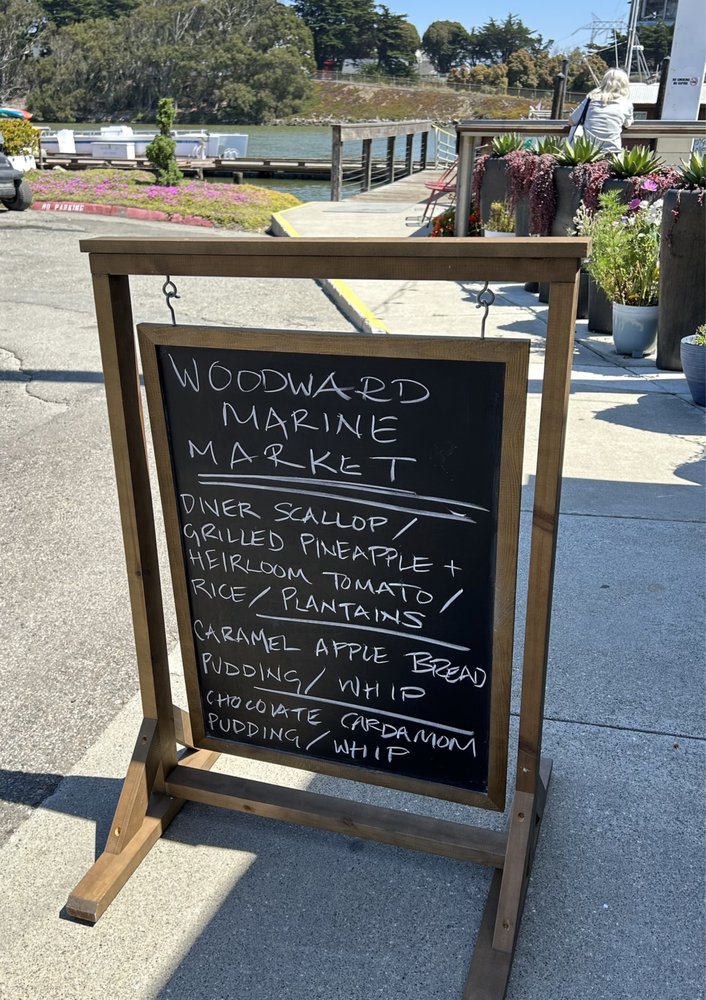 WOODWARD
MARINE
MARKET
DINER SCALLOP/
GRILLED PINEAPPLE +
HEIRLOOM TOMATO/
RICE/PLANTAINS
CARAMEL APPLE BREAD
PUDDING/WHIP
CHOCOLATE CARDAMOM
PUDDING/WHIP
NO PARKING